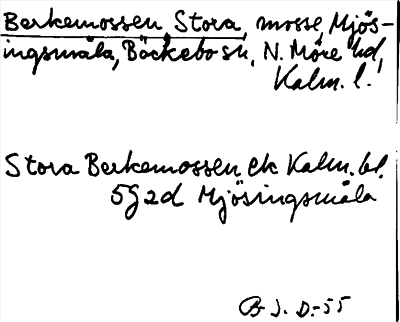 Berkemossen, Stora, mosse, Mjös-
ingsmåla, Bäckebo sn, N. Möre hd,
Kalm. l.
Stora Berkemossen ek Kalm. bl.
5g2d Mjösingsmåla
B J. D.-55